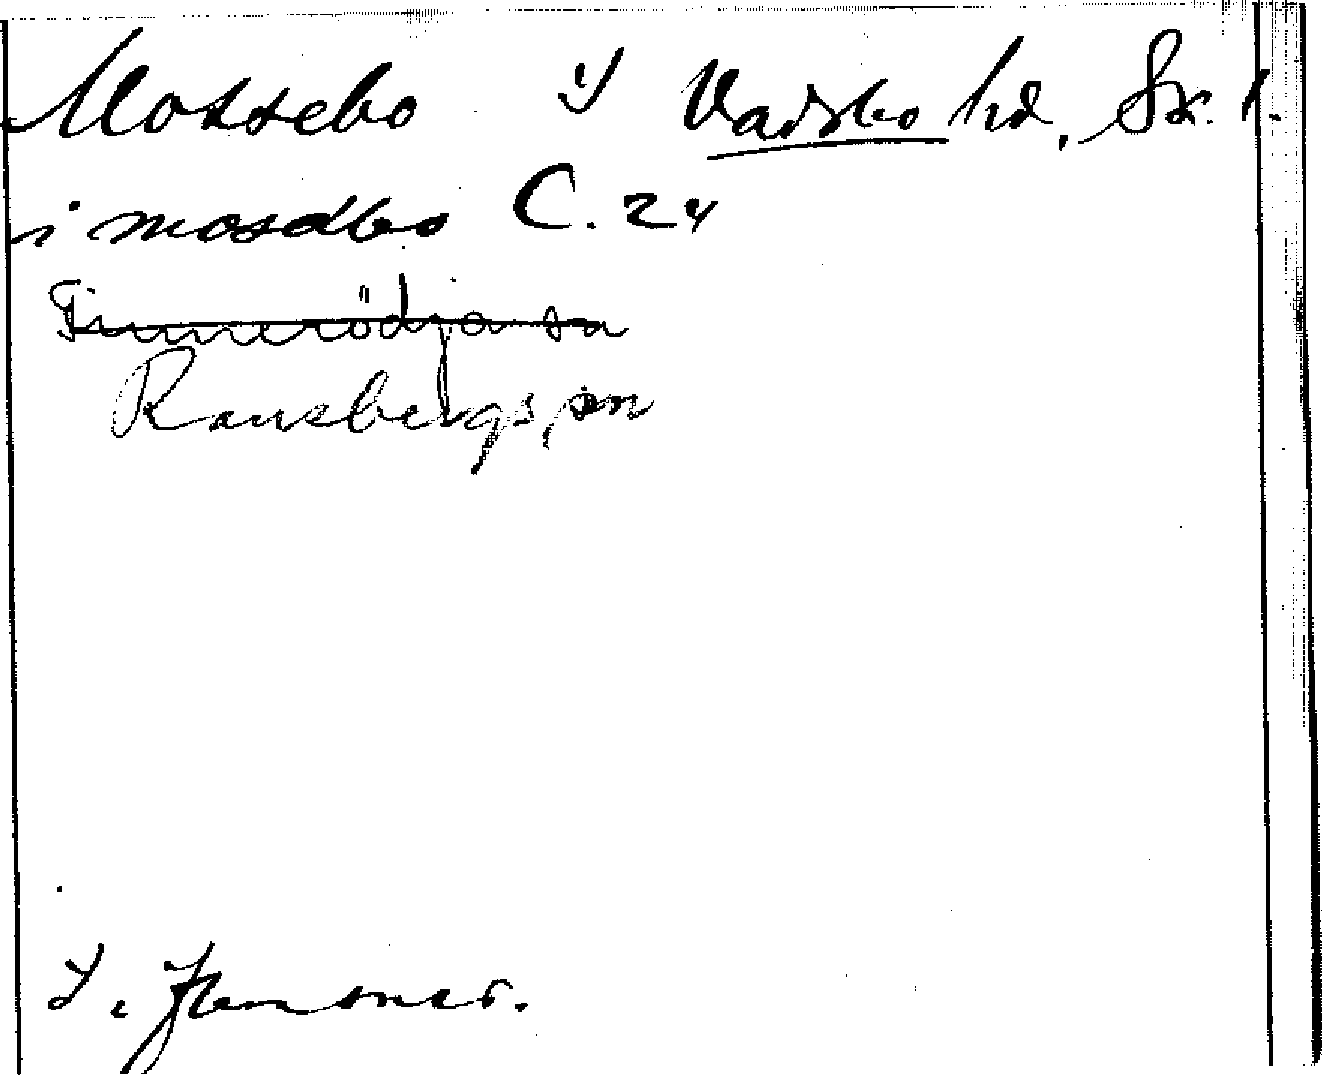 Mossebo Vadsbo hd, Sk. l.
i mosabo C. 24
Finnerödja sn
Ransbergs, sn